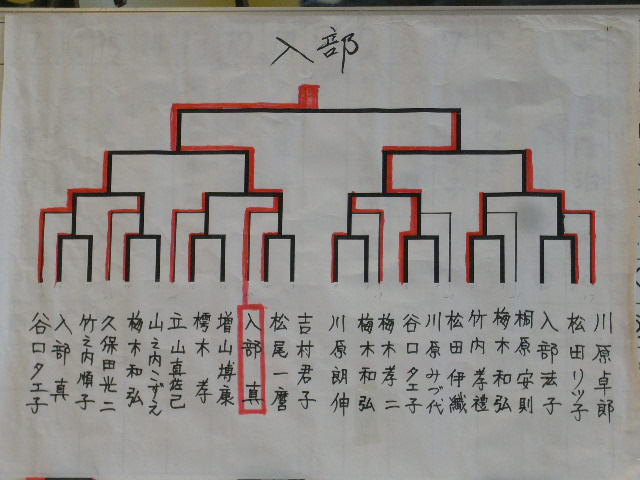 入部
谷口夕エ子
入部真
竹之内順子
久保田光二
梅木和弘
山之内こずえ
立山真佐己
樗木孝
増山博康
入部真
松尾一麿
吉村君子
川原朗伸
梅木和弘
梅木孝二
谷口夕エ子
川原みづ代
松田伊織
竹内孝禮
梅木和弘
桐原安則
入部法子
松田リツ子
川原卓郎